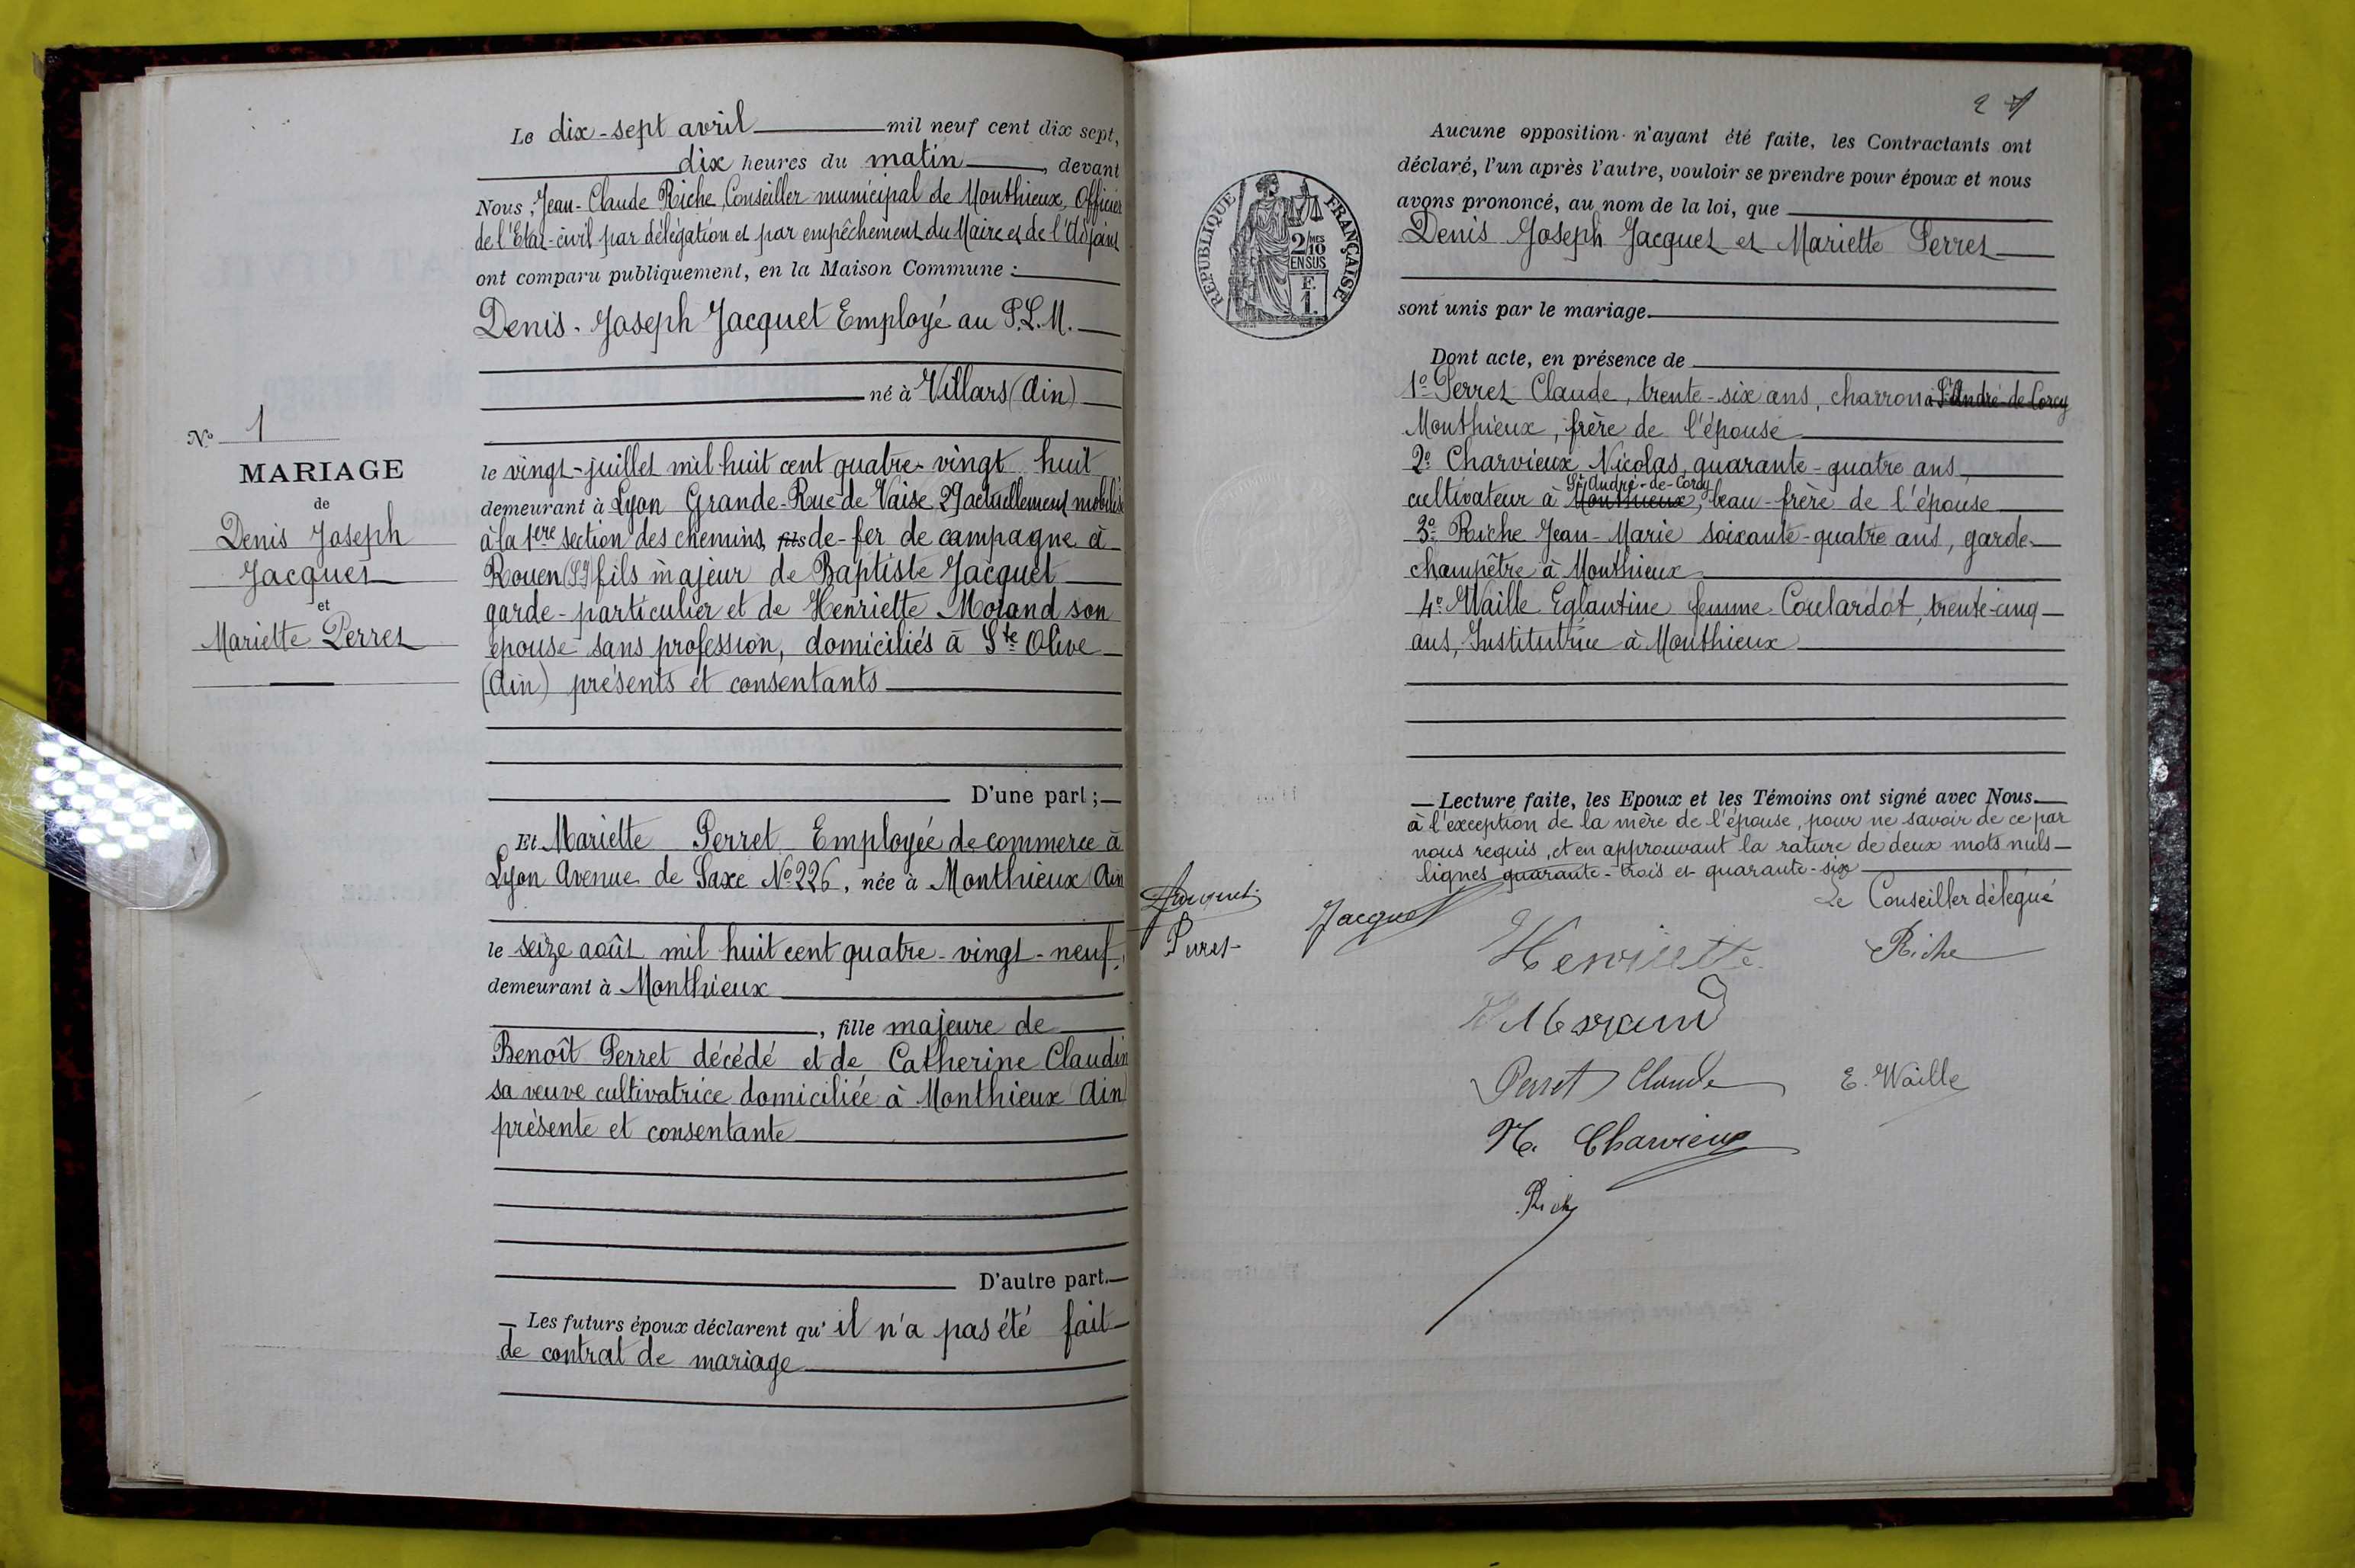 Nº 1
MARIAGE
de
Denis Joseph
Jacquet
et
Mariette Perret
Le dix-sept avril mil neuf cent dix sept,
dix heures du matin, devant
Nous, Jean-Claude Riche, Conseiller municipal de Monthieux, Officier
de l'Etat-civil par délégation et par empêchement du Maire et de l'Adjoint
ont comparu publiquement, en la Maison Commune :
Denis-Joseph Jacquet Employé au P.L.M.
né à Villars (Ain)
le vingt-juillet mil-huit cent quatre-vingt huit
demeurant à Lyon Grande-Rue-de Vaise 29 actuellement mobilisé
à la 1ère section des chemins, fils de-fer de campagne à
Rouen (S I) fils majeur de Baptiste Jacquet
garde-particulier et de Henriette Morand son
épouse sans profession, domiciliés à Ste Olive
(Ain) présents et consentants
D'une part ;
Et Mariette Perret Employée de commerce à
Lyon Avenue de Saxe Nº 226, née à Monthieux (Ain
le seize août mil huit cent quatre-vingt-neuf,
demeurant à Monthieux
, fille majeure de
Benoît Perret décédé et de Catherine Claudin
sa veuve cultivatrice domiciliée à Monthieux (Ain)
présente et consentante
D'autre part.
Les futurs époux déclarent qu' il n'a pas été fait
de contrat de mariage
2
RÉPUBLIQUE FRANÇAISE
2/MES
10
EN SUS
F.
1.
Aucune opposition n'ayant été faite, les Contractants ont
déclaré, l'un après l'autre, vouloir se prendre pour époux et nous
avons prononcé, au nom de la loi, que
Denis Joseph Jacquet et Mariette Perret
sont unis par le mariage.
Dont acte, en présence de
1º Perret Claude, trente-six ans, charron à St André-de-Corcy
Monthieux, frère de l'épouse
2º Charvieux Nicolas, quarante-quatre ans,
St André-de-Corcy
cultivateur à Monthieux, beau-frère de l'épouse
3º Riche Jean-Marie soixante-quatre ans, garde-
champêtre à Monthieux
4º Waille Eglantine femme Coulardot, trente-cinq
ans, Institutrice à Monthieux
Lecture faite, les Epoux et les Témoins ont signé avec Nous
à l'exception de la mère de l'épouse, pour ne savoir de ce par
nous requis, et en approuvant la rature de deux mots nuls
lignes quarante-trois et quarante-six
Le Conseiller délégué
Jacquet
Jacquet
Perret
Henriette
Riche
Morand
Perret Claude
E. Waille
N. Charvieux
Riche